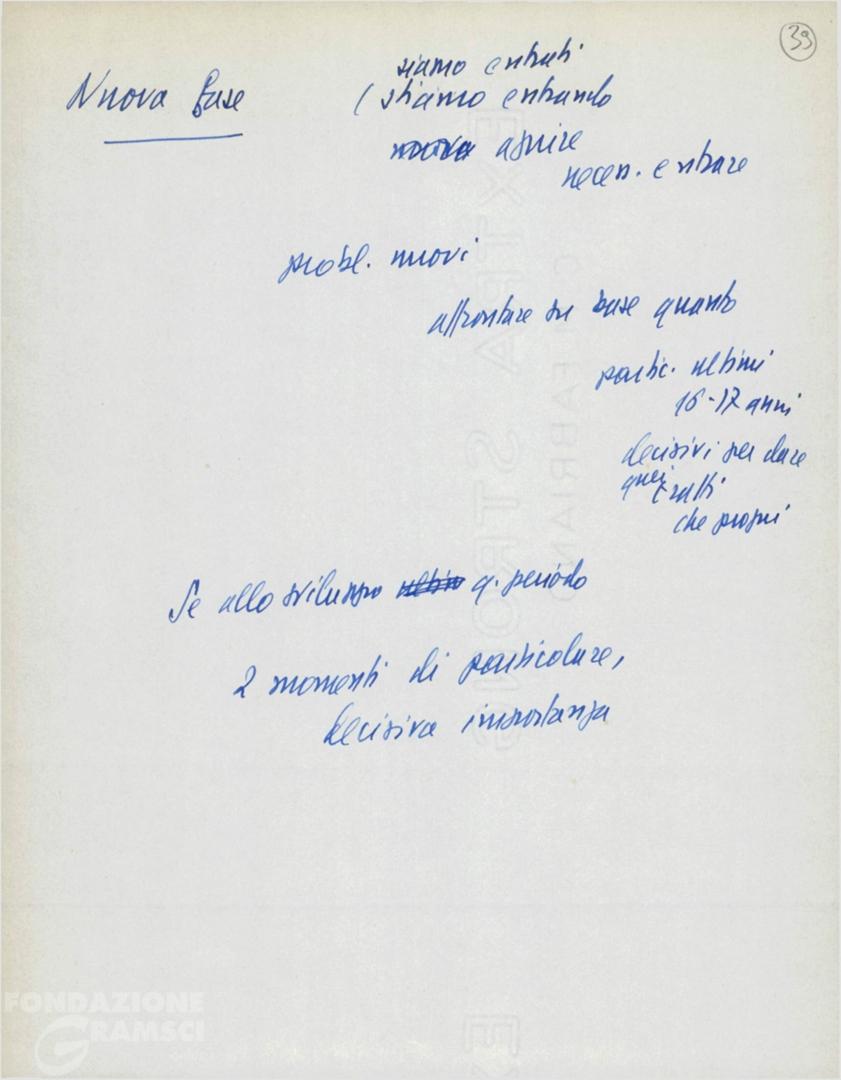 39
Nuova fase
siamo entrati
(stiamo entrando
nuova aprire
necess. entrare
probl. nuovi
affrontare su base quanto
partic. ultimi
16-17 anni
decisivi per dare
quei tratti
che propri
Se allo sviluppo q. periodo
2 momenti di particolare,
decisiva importanza
EXTRA STRONG
FABRIANO
FONDAZIONE
GRAMSCI